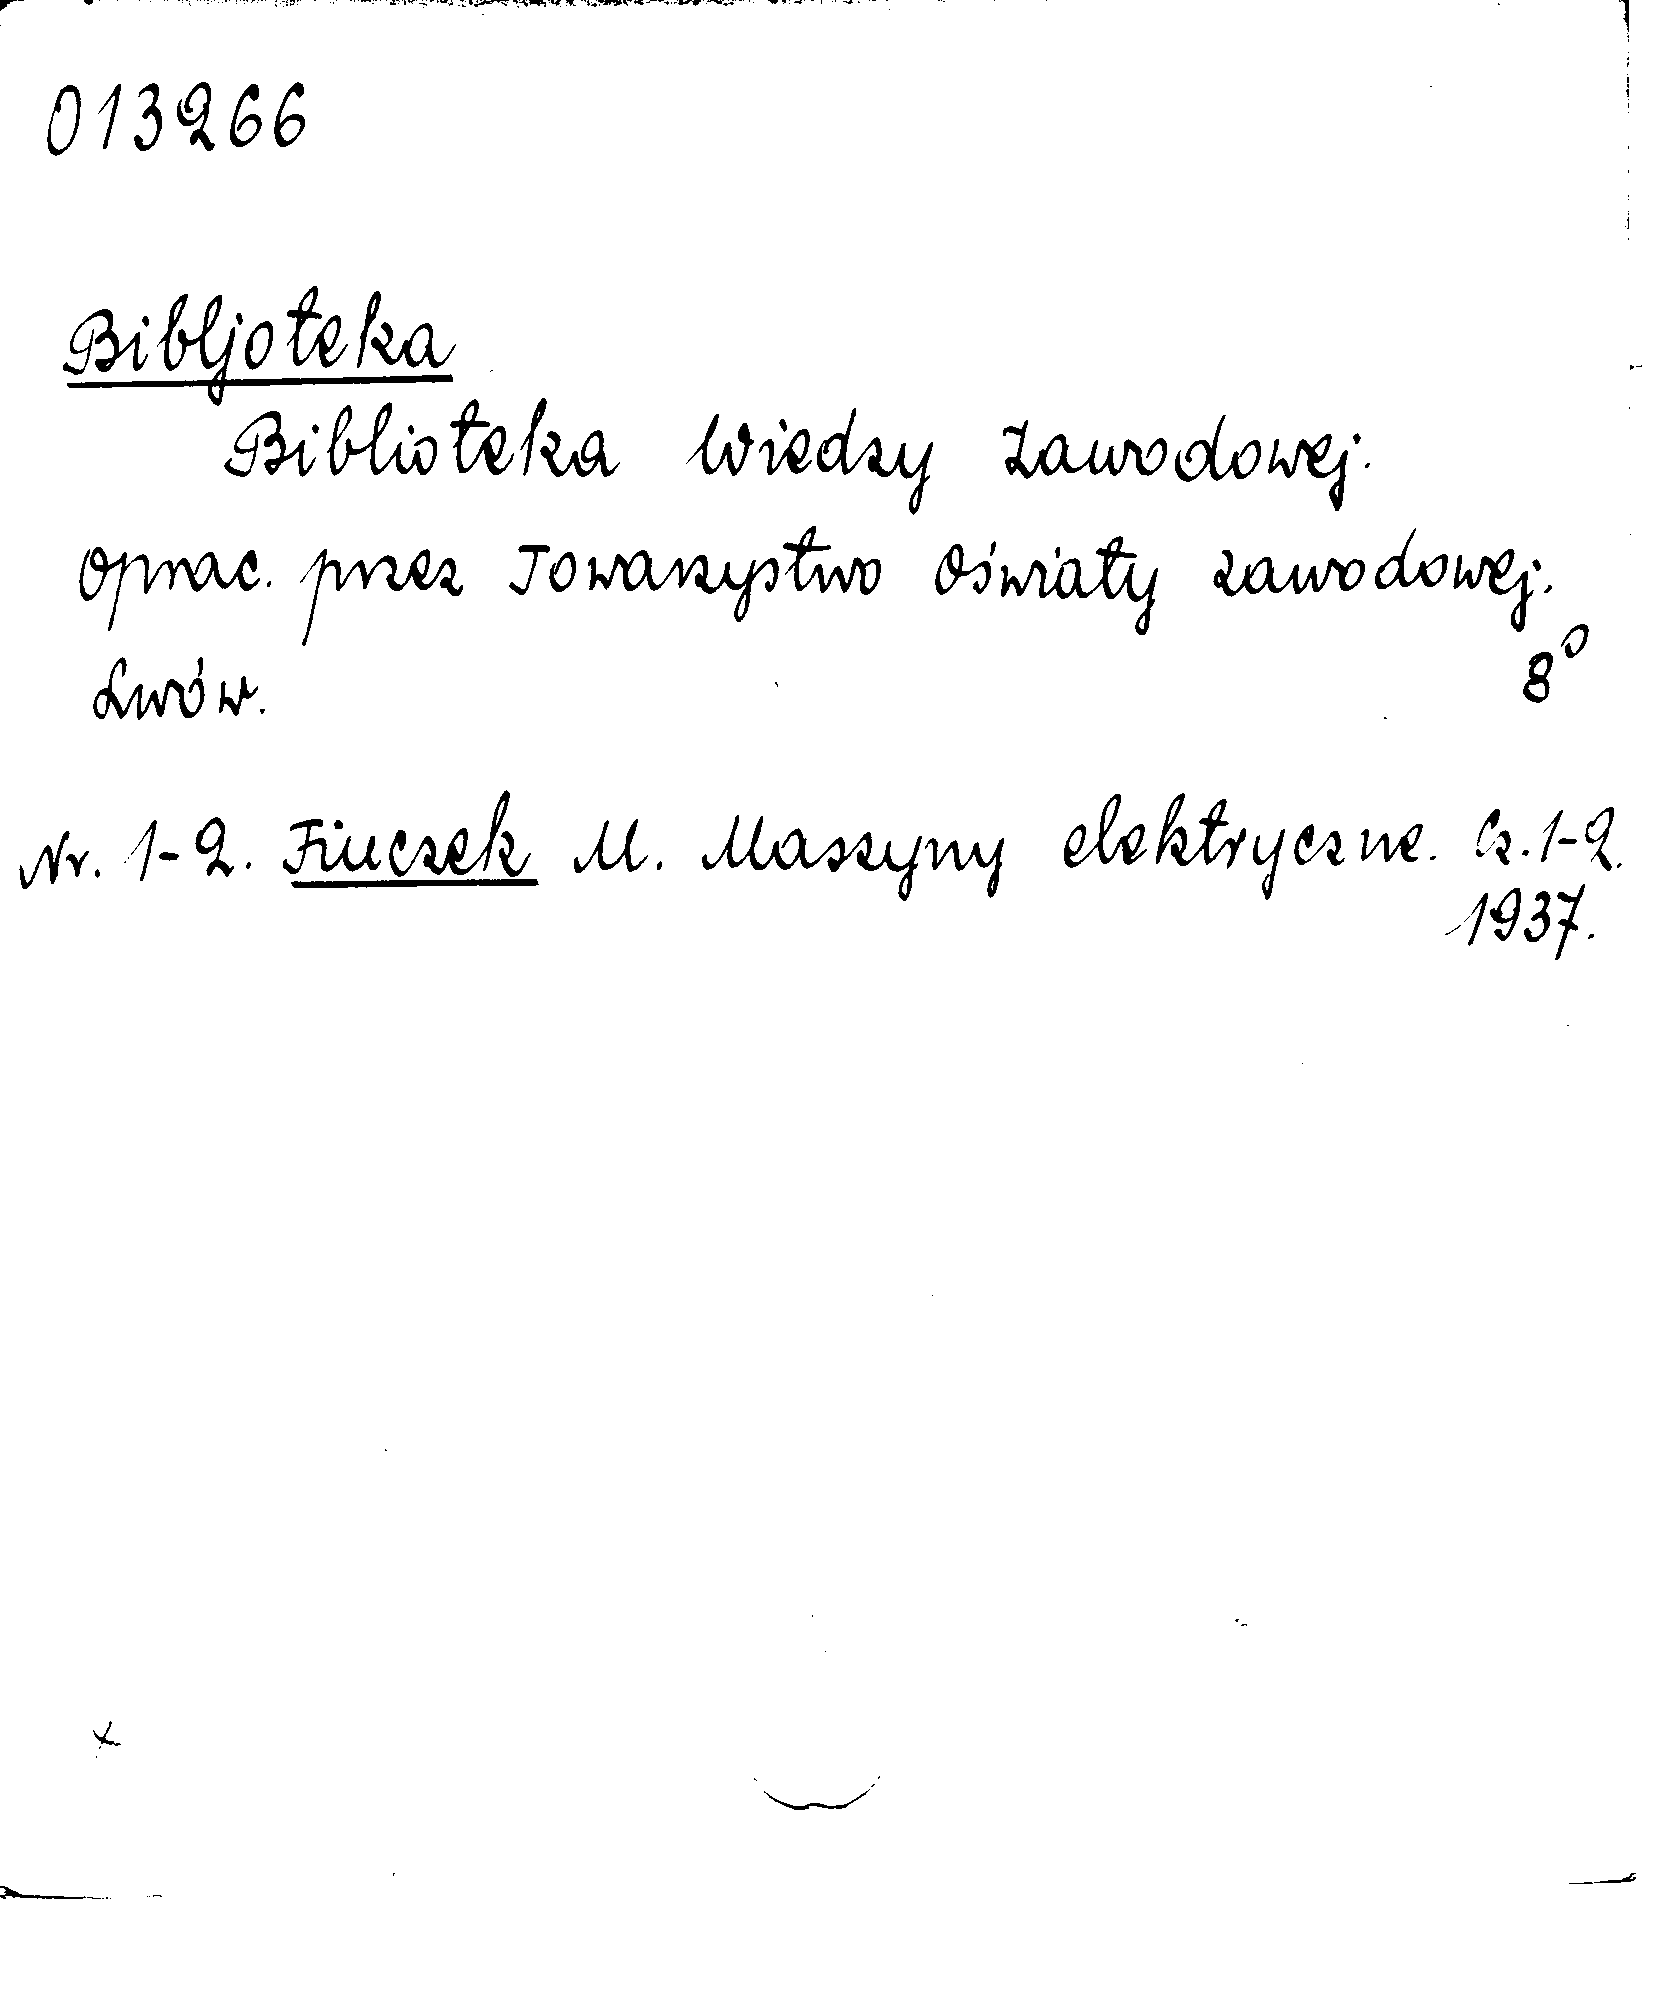 013266
Bibljoteka
Biblioteka Wiedzy Zawodowej.
Oprac. przez Towarzystwo Oświaty zawodowej.
Lwów. 8°
Nr. 1-2. Fiuczek M. Maszyny elektryczne. Cz. 1-2.
1937.